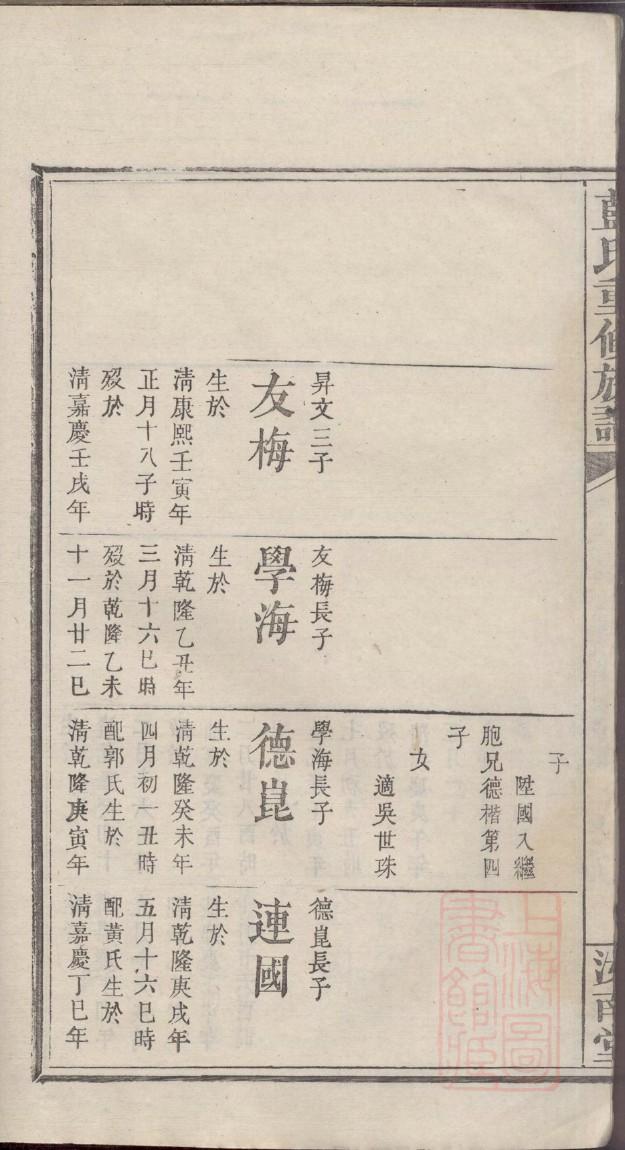 藍氏重修族譜
汝南堂
昇文三子
友梅
生於
清康熙壬寅年
正月十八子時
歿於
清嘉慶壬戌年
友梅長子
學海
生於
清乾隆乙丑年
三月十六巳時
歿於乾隆乙未
十一月廿二巳
子
陞國入繼
胞兄德楷第四
子
女一
適吳世珠
學海長子
德崑
生於
清乾隆癸未年
四月初一丑時
配郭氏生於
清乾隆庚寅年
德崑長子
連國
生於
清乾隆庚戌年
五月十六巳時
配黃氏生於
清嘉慶丁巳年
上海圖
書館藏